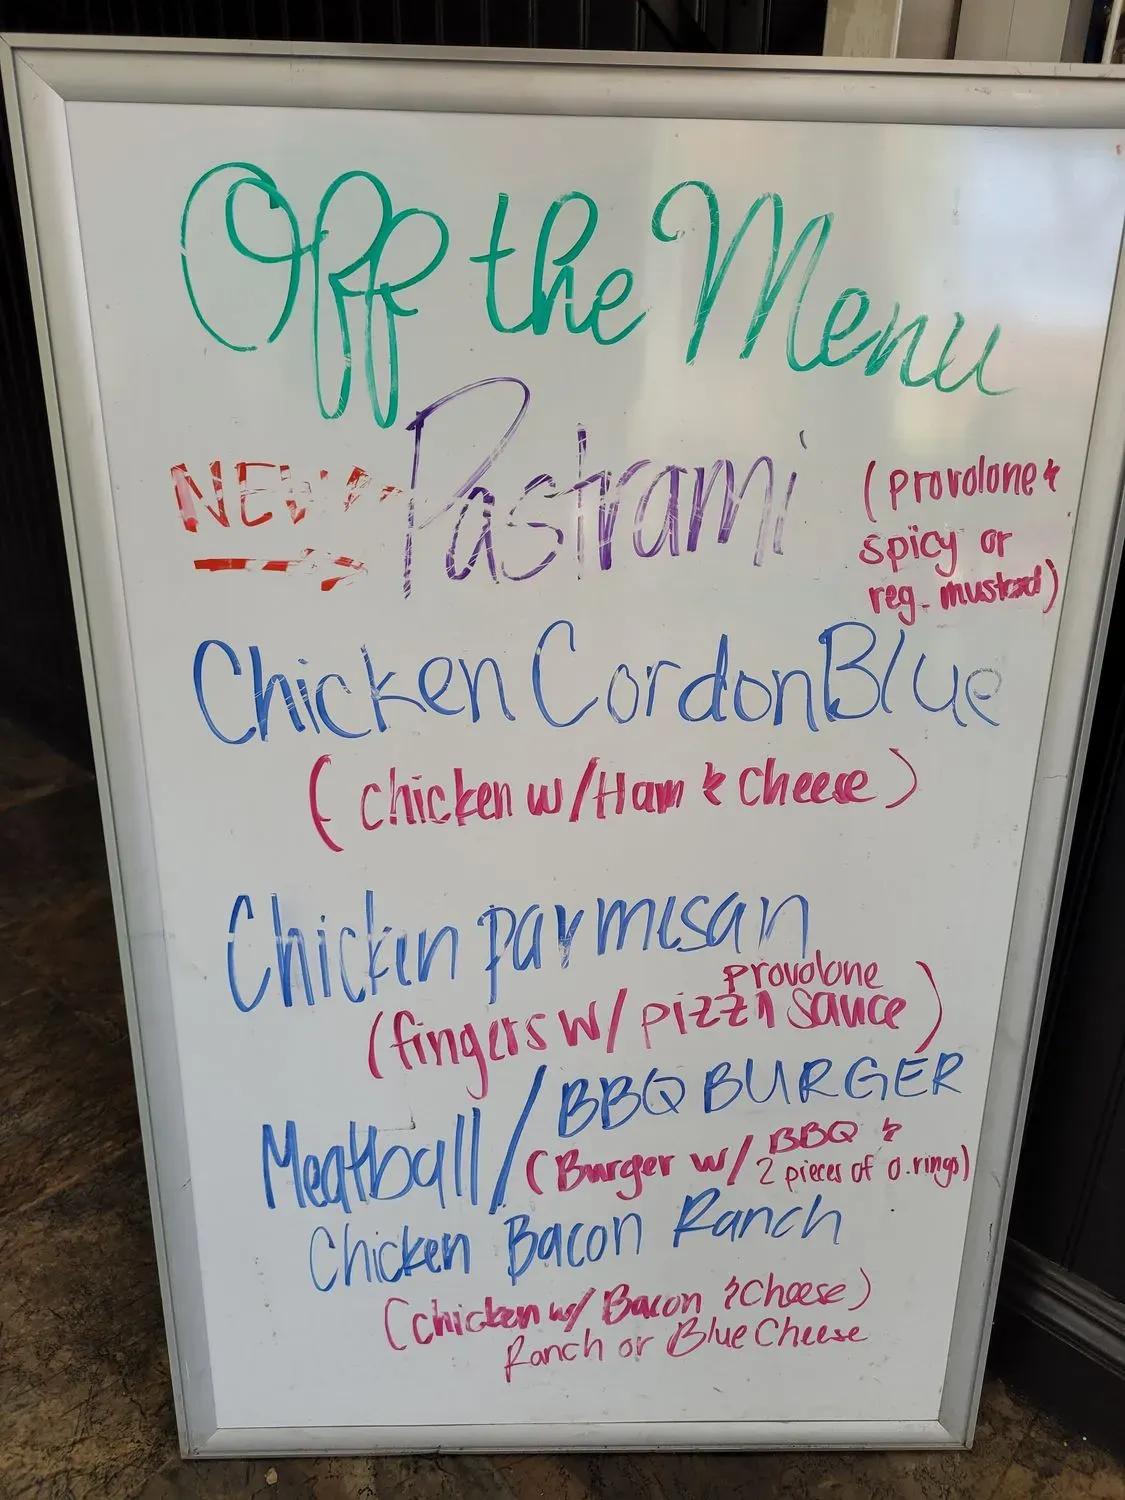 Off the Menu
NEW Pastrami (provolone &
spicy or
reg. mustard)
Chicken Cordon Blue
(chicken w/Ham & cheese)
Chicken parmesan
provolone
(fingers w/ pizza sauce)
Meatball/BBQ BURGER
(Burger w/ BBQ &
2 pieces of o.rings)
Chicken Bacon Ranch
(chicken w/ Bacon & Cheese)
Ranch or Blue Cheese